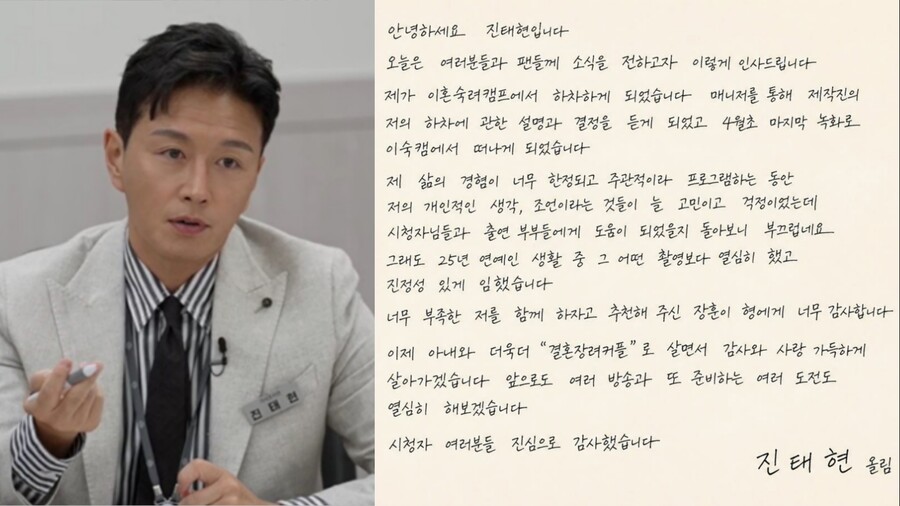 진태현
안녕하세요 진태현입니다
오늘은 여러분들과 팬들께 소식을 전하고자 이렇게 인사드립니다
제가 이혼숙려캠프에서 하차하게 되었습니다 매니저를 통해 제작진의
저의 하차에 관한 설명과 결정을 듣게 되었고 4월초 마지막 녹화로
이숙캠에서 떠나게 되었습니다
제 삶의 경험이 너무 한정되고 주관적이라 프로그램하는 동안
저의 개인적인 생각, 조언이라는 것들이 늘 고민이고 걱정이었는데
시청자님들과 출연 부부들에게 도움이 되었을지 돌아보니 부끄럽네요
그래도 25년 연예인 생활 중 그 어떤 촬영보다 열심히 했고
진정성 있게 임했습니다
너무 부족한 저를 함께 하자고 추천해 주신 장훈이 형에게 너무 감사합니다
이제 아내와 더욱더 “결혼장려커플”로 살면서 감사와 사랑 가득하게
살아가겠습니다 앞으로도 여러 방송과 또 준비하는 여러 도전도
열심히 해보겠습니다
시청자 여러분들 진심으로 감사했습니다
진태현 올림